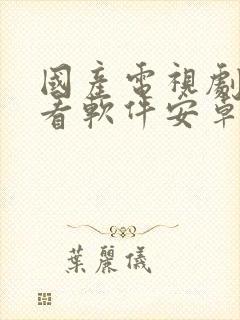 國產電視劇
看軟件安卓
葉麗儀